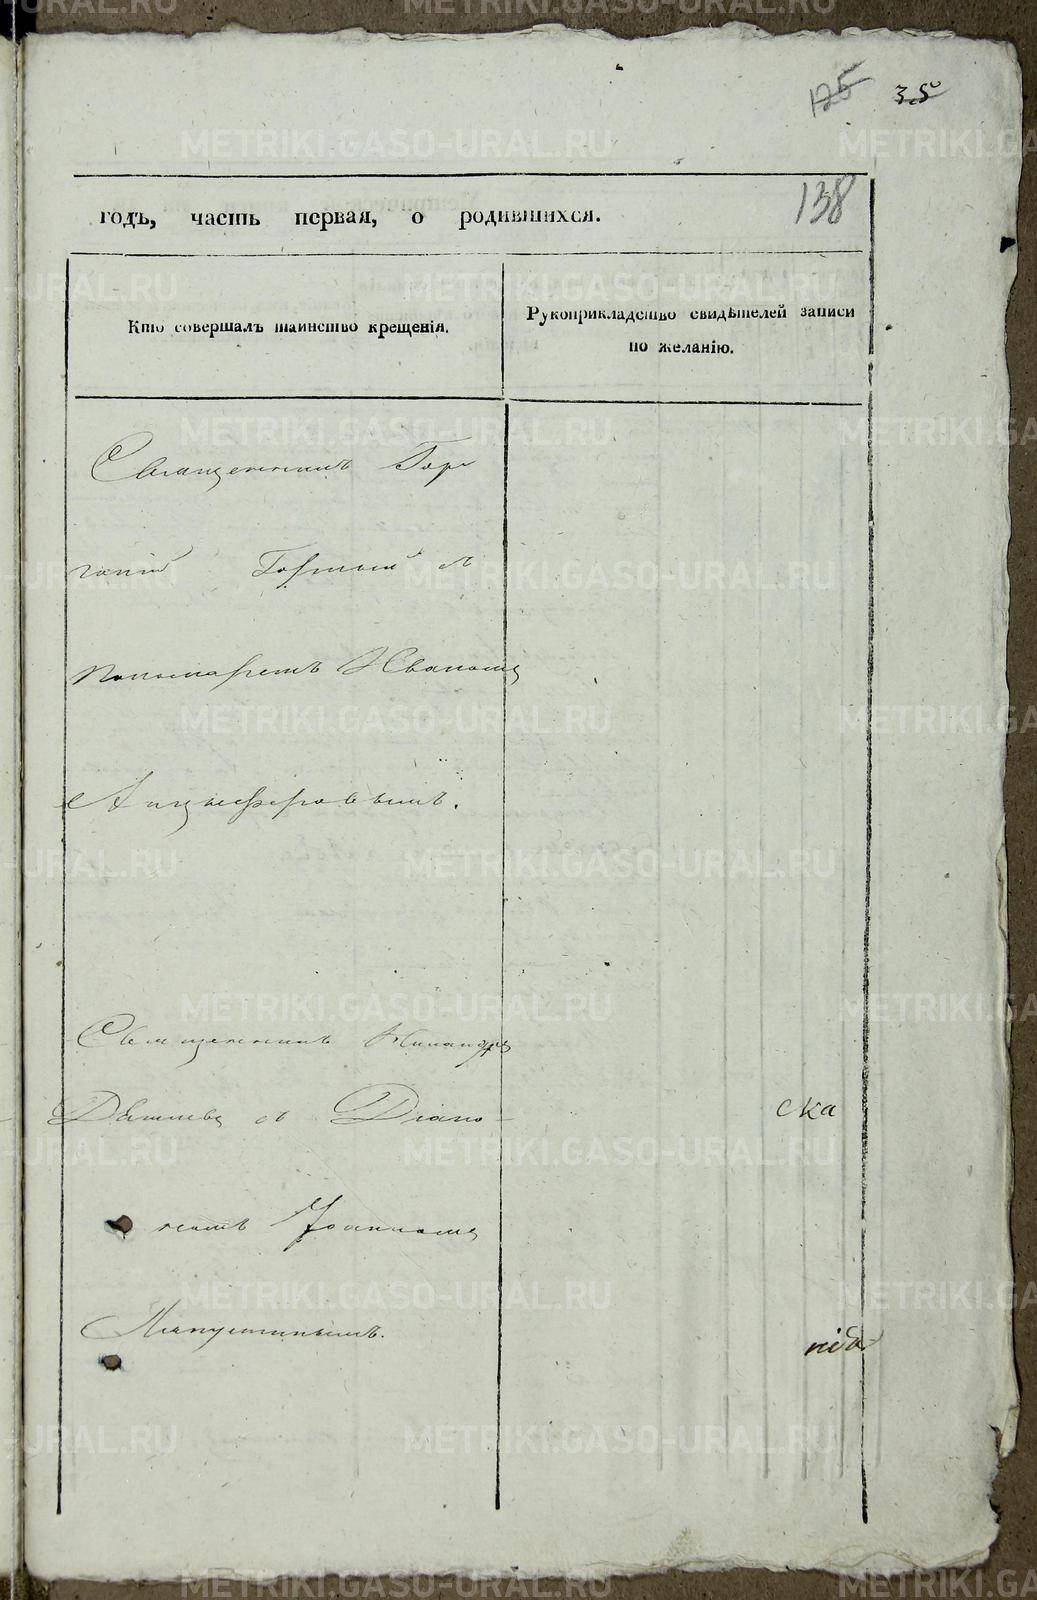 125 35
138
годъ, часть первая, о родившихся.
Кто совершалъ таинство крещенія.
Рукоприкладство свидѣтелей записи
по желанію.
Священникъ
съ
пономаремъ Иваномъ
Анцыферовымъ.
Священникъ Никандръ
съ Діако-
ска
номъ Іоанномъ
Капустинымъ.
METRIKI.GASO-URAL.RU